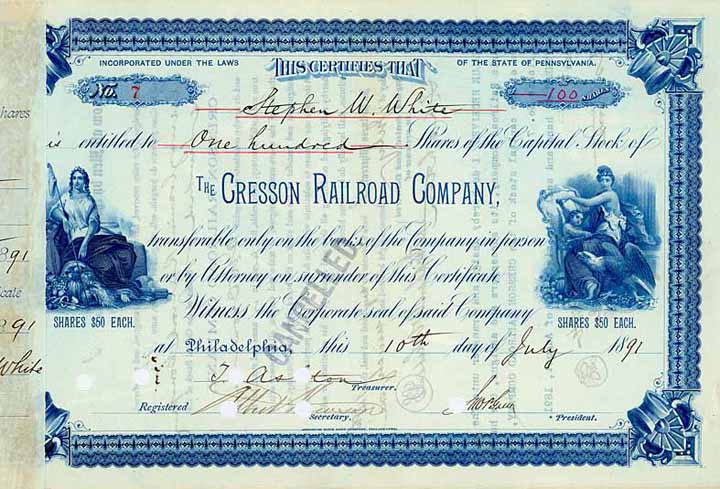 INCORPORATED UNDER THE LAWS THIS CERTIFIES THAT OF THE STATE OF PENNSYLVANIA.
No. 7 100 SHARES
Stephen W. White
is entitled to One hundred Shares of the Capital Stock of
THE CRESSON RAILROAD COMPANY,
transferable only on the books of the Company in person
or by Attorney on surrender of this Certificate
Witness the Corporate seal of said Company
at Philadelphia, this 10th day of July 1891
SHARES $50 EACH.
SHARES $50 EACH.
CANCELLED
Treasurer.
Registered
Secretary.
President.
hares
891
cate
91
White